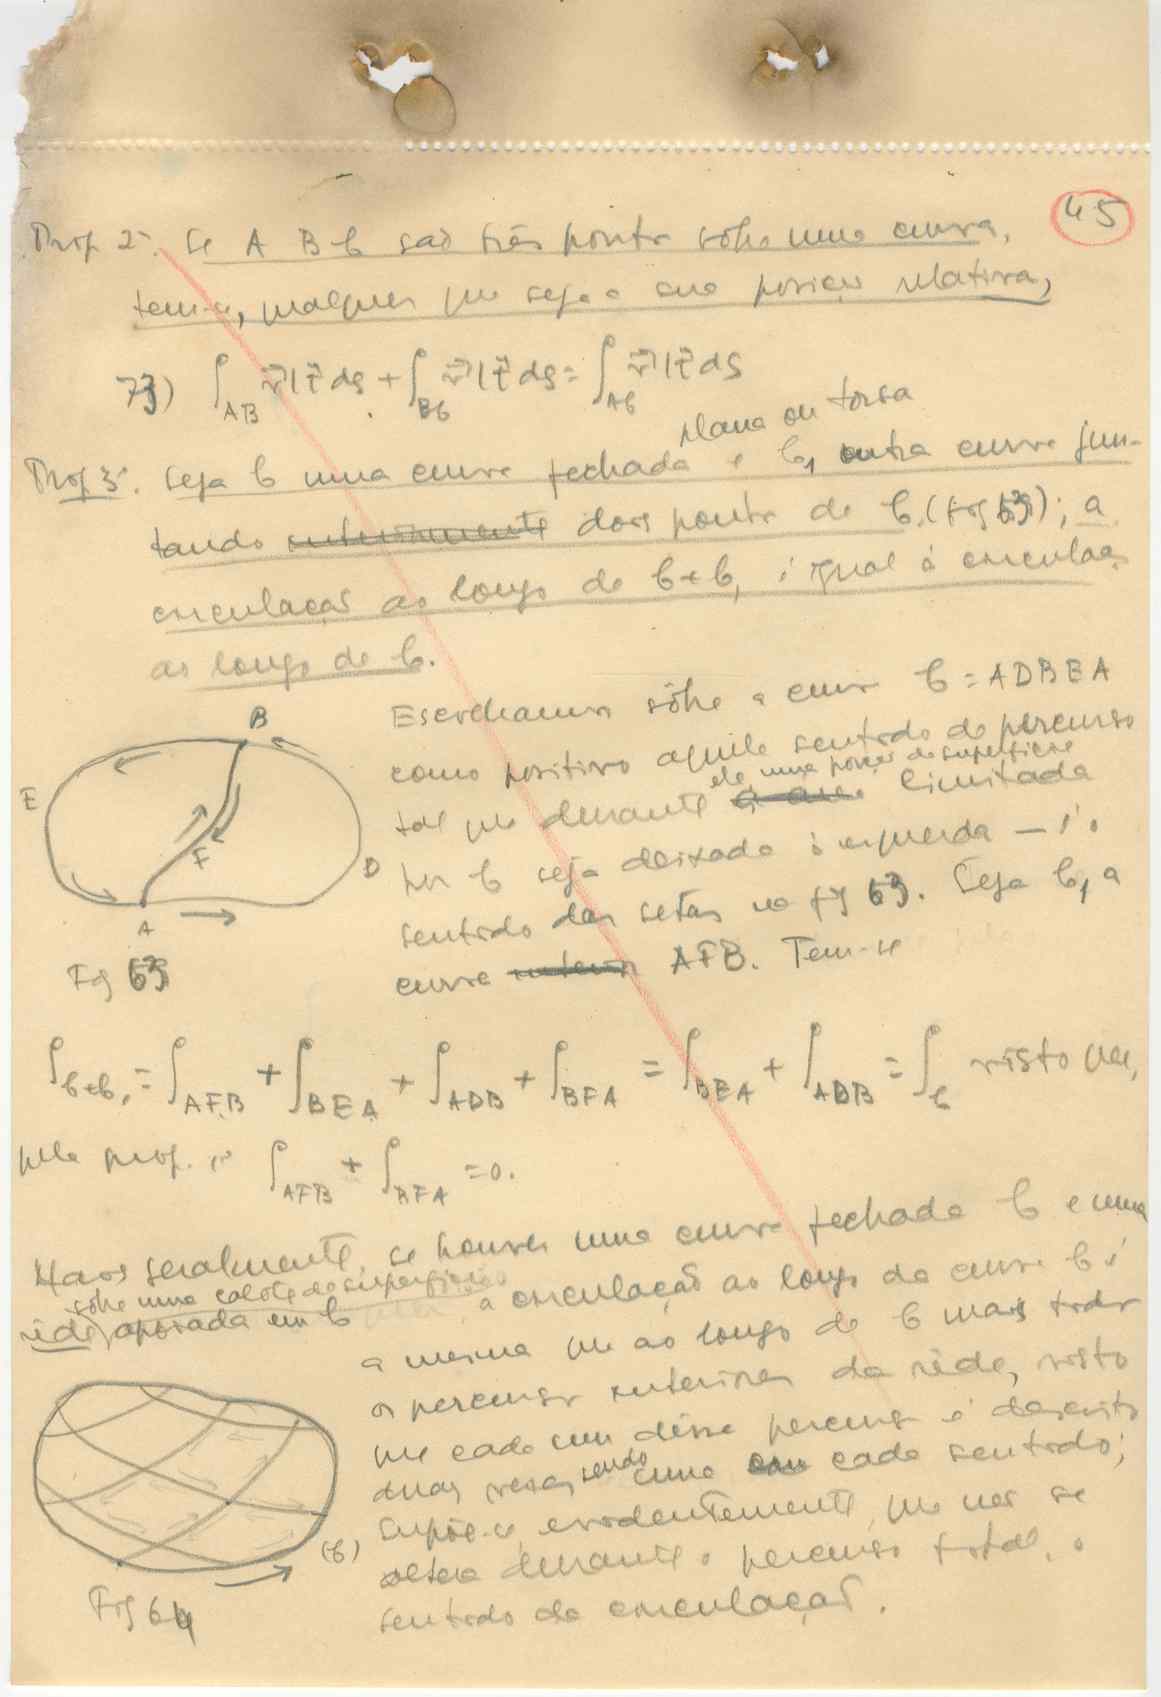 45
Prop 2ª. Se A B C são três pontos sôbre uma curva,
tem-se, qualquer que seja a sua posição relativa,
73) ∫_AB v⃗|t⃗ ds + ∫_BC v⃗|t⃗ ds = ∫_AC v⃗|t⃗ ds
plana ou torsa
Prop 3ª. Seja C uma curva fechada e C₁ outra curva jun-
tando interiormente dois pontos de C (fig 63); a
circulação ao longo de C+C₁ é igual á circulação
ao longo de C.
Escolhamos sôbre a curva C = ADBEA
como positivo aquele sentido de percurso
ele uma porção de superfície
tal que durante a área limitada
por C seja deixada á esquerda — é o
sentido das setas na fig 63. Seja C₁ a
curva interior AFB. Tem-se
B
E
F
D
A
Fig 63
∫_C+C₁ = ∫_AFB + ∫_BEA + ∫_ADB + ∫_BFA = ∫_BEA + ∫_ADB = ∫_C visto que,
pela prop. 1ª ∫_AFB + ∫_BFA = 0.
Mais geralmente, se houver uma curva fechada C e uma
sôbre uma calote de superfície
rêde, apoiada em C a circulação ao longo da curva C é
a mesma que ao longo de C mais todos
os percursos interiores da rêde, visto
que cada um dêsses percursos é descrito
duas vezes sendo uma em cada sentido;
supõe-se evidentemente, que não se
altera durante o percurso total, o
sentido da circulação.
(C)
Fig 64